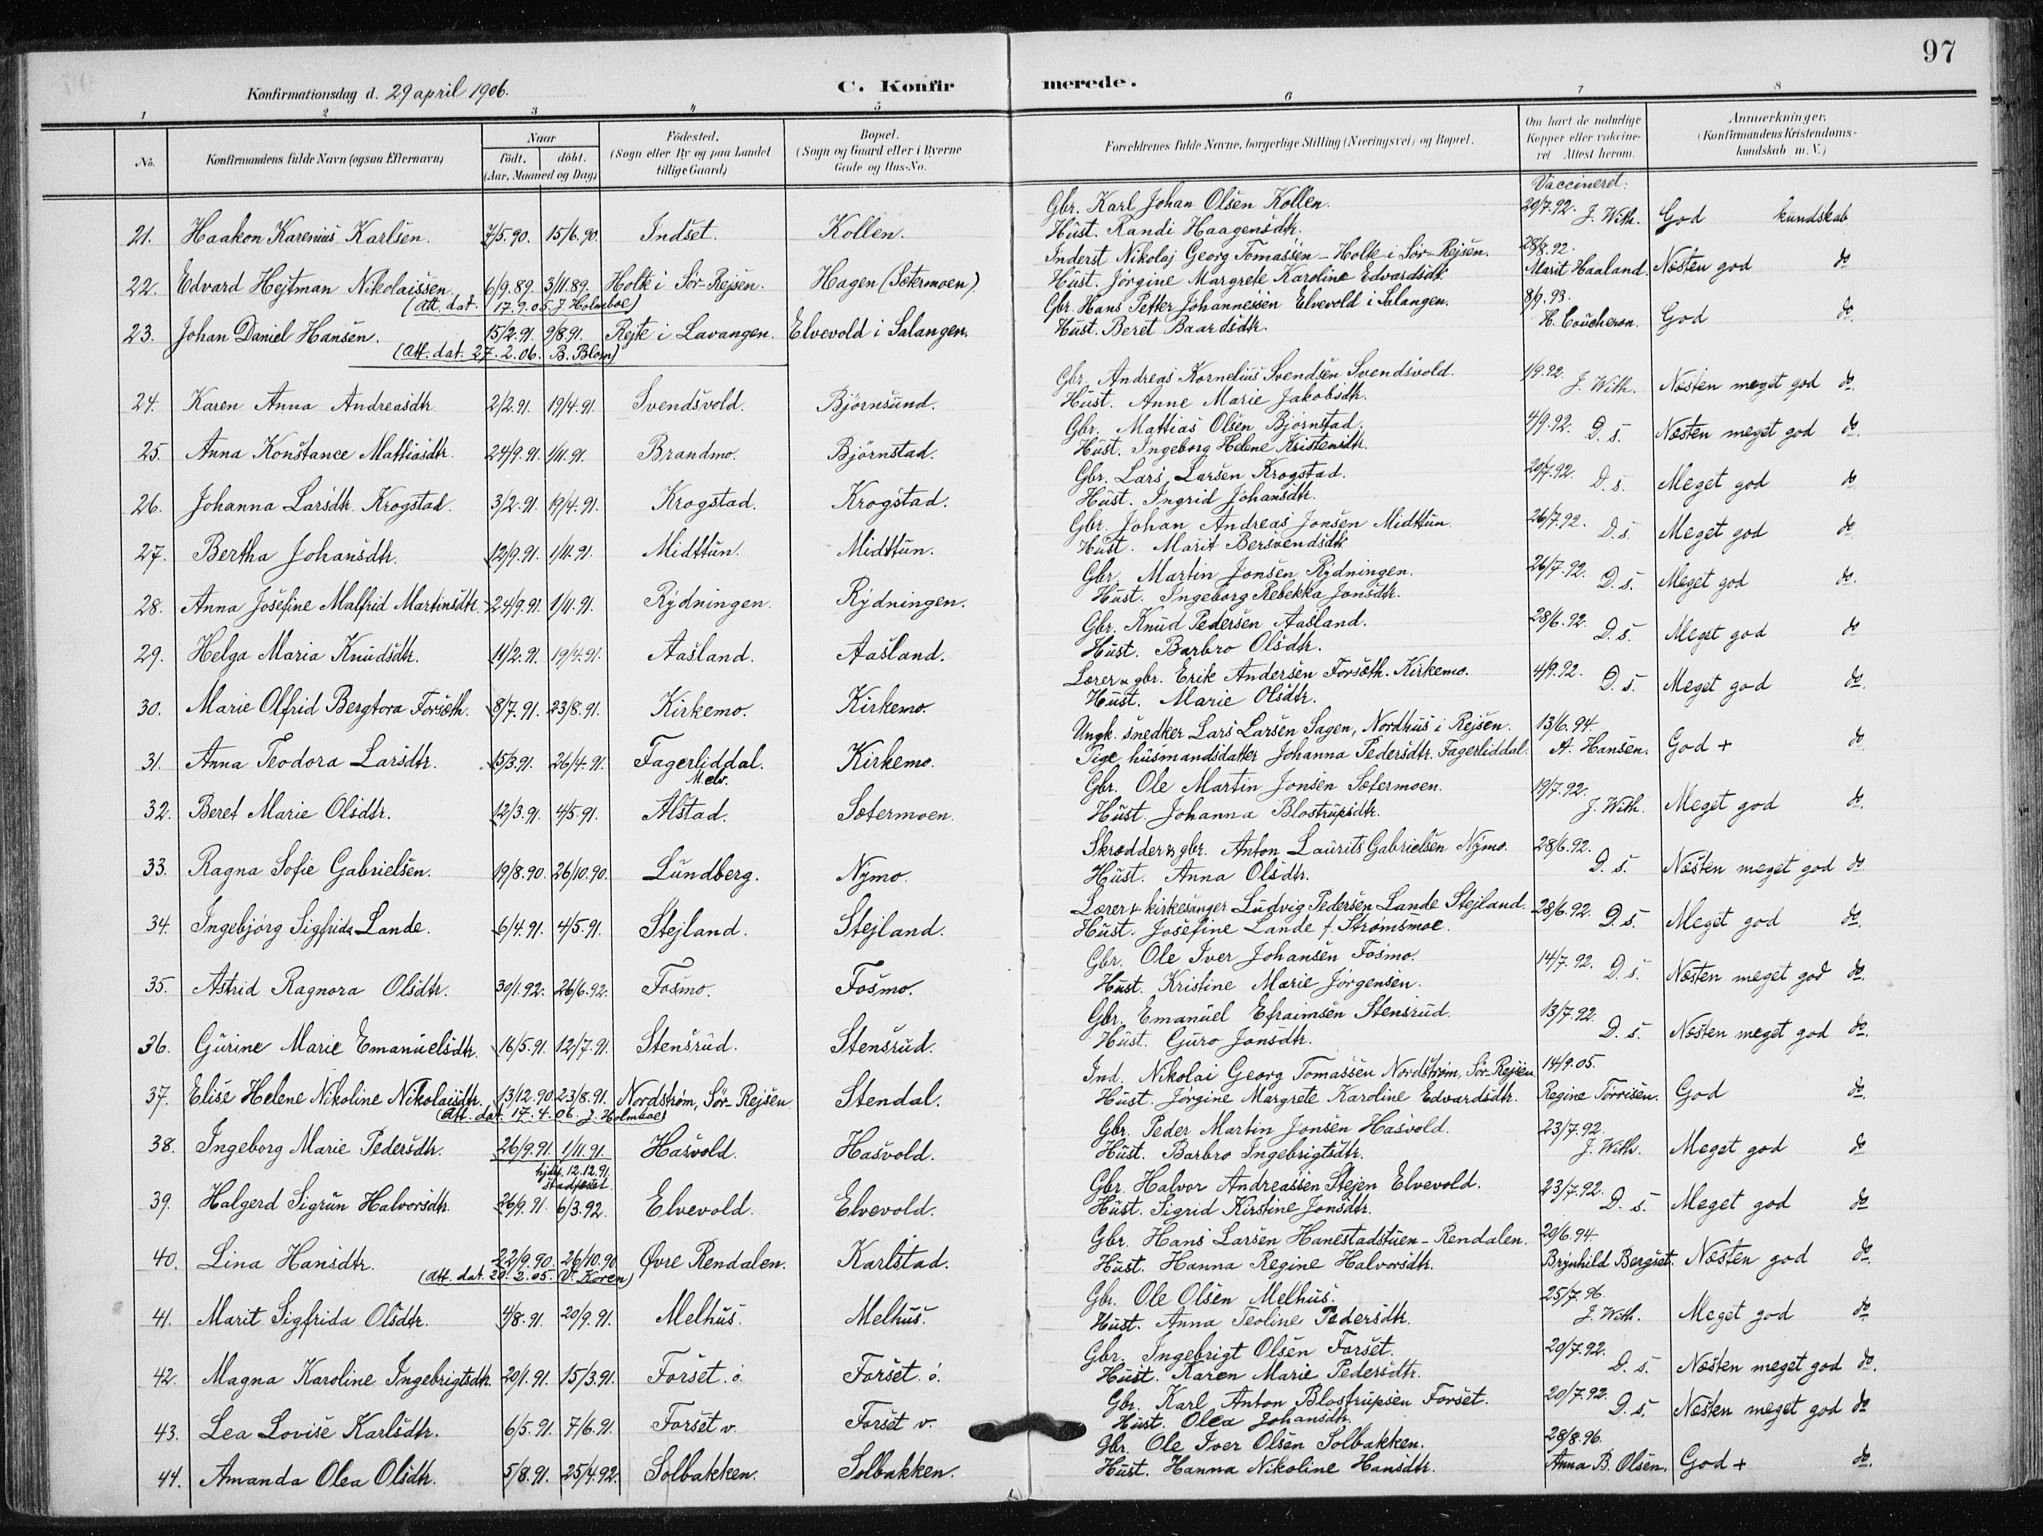 97
Konfirmationsdag d. 29 april 1906.
C. Konfirmerede.
1 2 3 4 5 6 7 8
No. Konfirmandens fulde Navn (ogsaa Efternavn) Naar födt. döbt. (Aar, Maaned og Dag) Födested. (Sogn eller By og paa Landet tillige Gaard) Bopæl. (Sogn og Gaard eller i Byerne Gade og Hus-No. Forældrenes fulde Navne, borgerlige Stilling (Næringsvei) og Bopæl. Om havt de naturlige Kopper eller vaccineret Attest herom. Anmærkninger. (Konfirmandens Kristendomskundskab m. V.)
Vaccineret:
Gbr. Karl Johan Olsen Kollen.
21. Haakon Karenius Karlsen. 7/5.90. 15/6.90. Indset. Kollen. Hust. Randi Haagensdtr. 20/7.92. J. With. God kundskab
Inderst Nikolaj Georg Tomassen - Holte i Sør-Rejsen.
22. Edvard Hejtman Nikolaissen. 6/9.89. 3/11.89. Holte i Sør-Rejsen. Hagen (Sætermoen) Hust. Jørgine Margrete Karoline Edvardsdtr. 28/8.92. Marit Haaland. Næsten god do
(Att. dat. 17.9.05. J. Holmboe)
Gbr. Hans Petter Johannessen Elvevold i Salangen.
23. Johan Daniel Hansen. 15/2.91. 9/8.91. Rejte i Lavangen. Elvevold i Salangen. Hust. Beret Baardsdtr. 8/9.93. H. Coucheron. God do.
(Att. dat. 27.2.06. B. Blom)
Gbr. Andreas Kornelius Svendsen Svendsvold.
24. Karen Anna Andreasdtr. 2/2.91. 19/4.91. Svendsvold. Bjørnsund. Hust. Anne Marie Jakobsdtr. 1/9.92. J. With. Næsten meget god do.
Gbr. Mattias Olsen Bjørnstad.
25. Anna Konstance Mattiasdtr. 24/9.91. 1/11.91. Brandmo. Bjørnstad. Hust. Ingeborg Helene Kristensdtr. 4/9.92. D. s. Næsten meget god do.
Gbr. Lars Larsen Krogstad.
26. Johanna Larsdtr. Krogstad. 3/2.91. 19/4.91. Krogstad. Krogstad. Hust. Ingrid Johansdtr. 20/7.92. D. s. Meget god do
Gbr. Johan Andreas Jonsen Midttun.
27. Bertha Johansdtr. 12/9.91. 1/11.91. Midttun. Midttun. Hust. Marit Bersvendsdtr 26/7.92. D. s. Meget god do.
Gbr. Martin Jonsen Rydningen.
28. Anna Josefine Malfrid Martinsdtr. 24/9.91. 1/11.91. Rydningen. Rydningen. Hust. Ingeborg Rebekka Jonsdtr. 26/7.92. D. s. Meget god do.
Gbr. Knud Pedersen Aasland.
29. Helga Maria Knudsdtr. 11/2.91. 19/4.91. Aasland. Aasland. Hust. Barbro Olsdtr. 28/6.92. D. s. Meget god do
Lærer & gbr. Erik Andersen Forseth. Kirkemo.
30. Marie Olfrid Bergtora Forseth. 8/7.91. 23/8.91. Kirkemo. Kirkemo. Hust. Marie Olsdtr. 4/9.92. D. s. Meget god do.
Ungk. snedker Lars Larsen Sagen, Nordhus i Rejsen.
31. Anna Teodora Larsdtr. 15/3.91. 26/4.91. Fagerliddal. Kirkemo. Pige husmandsdatter Johanna Pedersdtr. Fagerliddal. 13/6.94. A. Hansen. God + do
Gbr. Ole Martin Jonsen Sætermoen.
32. Beret Marie Olsdtr. 12/3.91. 4/5.91. Alstad. Sætermoen. Hust. Johanna Blostrupsdtr. 19/7.92. J. With. Meget god do.
Skrædder & gbr. Anton Laurits Gabrielsen Nymo.
33. Ragna Sofie Gabrielsen. 19/8.90. 26/10.90. Lundberg. Nymo. Hust. Anna Olsdtr. 28/6.92. D. s. Næsten meget god do
Lærer & kirkesanger Ludvig Pedersen Lande Stejland.
34. Ingebjørg Sigfrids Lande. 6/4.91. 4/5.91. Stejland. Stejland. Hust. Josefine Lande f. Strømsmoe. 28/6.92. D. s. Meget god do.
Gbr. Ole Iver Johansen Fosmo.
35. Astrid Ragnora Olsdtr. 30/1.92. 26/6.92. Fosmo. Fosmo. Hust. Kristine Marie Jørgensen. 14/7.92. D. s. Næsten meget god do.
Gbr. Emanuel Efraimsen Stensrud.
36. Gurine Marie Emanuelsdtr. 16/5.91. 12/7.91. Stensrud. Stensrud. Hust. Guro Jonsdtr. 13/7.92. D. s. Næsten meget god do.
Ind. Nikolai Georg Tomassen Nordstrøm, Sør-Rejsen
37. Elise Helene Nikoline Nikolaisdtr. 13/12.90. 23/8.91. Nordstrøm, Sør-Rejsen. Stendal. Hust. Jørgine Margrete Karoline Edvardsdtr. 14/9.05. Regine Torrisen. God do.
(Att. dat. 17.4.06. J. Holmboe)
Gbr. Peder Martin Jonsen Hasvold.
38. Ingeborg Marie Pedersdtr. 26/9.91. 1/11.91. Hasvold. Hasvold. Hust. Barbro Ingebrigtsdtr. 23/7.92. J. With. Meget god do
hjdbt. 12.12.91.
stadfæstet.
Gbr. Halvor Andreassen Stejen Elvevold.
39. Halgerd Sigrun Halvorsdtr. 26/9.91. 6/3.92. Elvevold. Elvevold. Hust. Sigrid Kirstine Jonsdtr. 23/7.92. D. s. Meget god do
Gbr. Hans Larsen Hanestadstuen - Rendalen.
40. Lina Hansdtr. 22/9.90. 26/10.90 Øvre Rendalen. Karlstad. Hust. Hanna Regine Halvorsdtr. 20/6.94. Brynhild Bergset. Næsten god do.
(Att. dat. 20.2.05. V. Koren)
Gbr. Ole Olsen Melhus.
41. Marit Sigfrida Olsdtr. 4/8.91. 20/9.91. Melhus. Melhus. Hust. Anna Teoline Pedersdtr. 25/7.96. J. With. Meget god do
Gbr. Ingebrigt Olsen Forset.
42. Magna Karoline Ingebrigtsdtr. 20/1.91. 15/3.91. Forset. ö. Forset. ö. Hust. Karen Marie Pedersdtr. 20/7.92. D. s. Næsten meget god do.
Gbr. Karl Anton Blostrupsen Forset.
43. Lea Lovise Karlsdtr. 6/5.91. 7/6.91. Forset v. Forset v. Hust. Olea Johansdtr. 20/7.92. D. s. Næsten meget god do
Gbr. Ole Iver Olsen Solbakken.
44. Amanda Olea Olsdtr. 5/8.91. 25/4.92. Solbakken. Solbakken. Hust. Hanna Nikoline Hansdtr. 28/8.96. Anna B. Olsen. God + do.